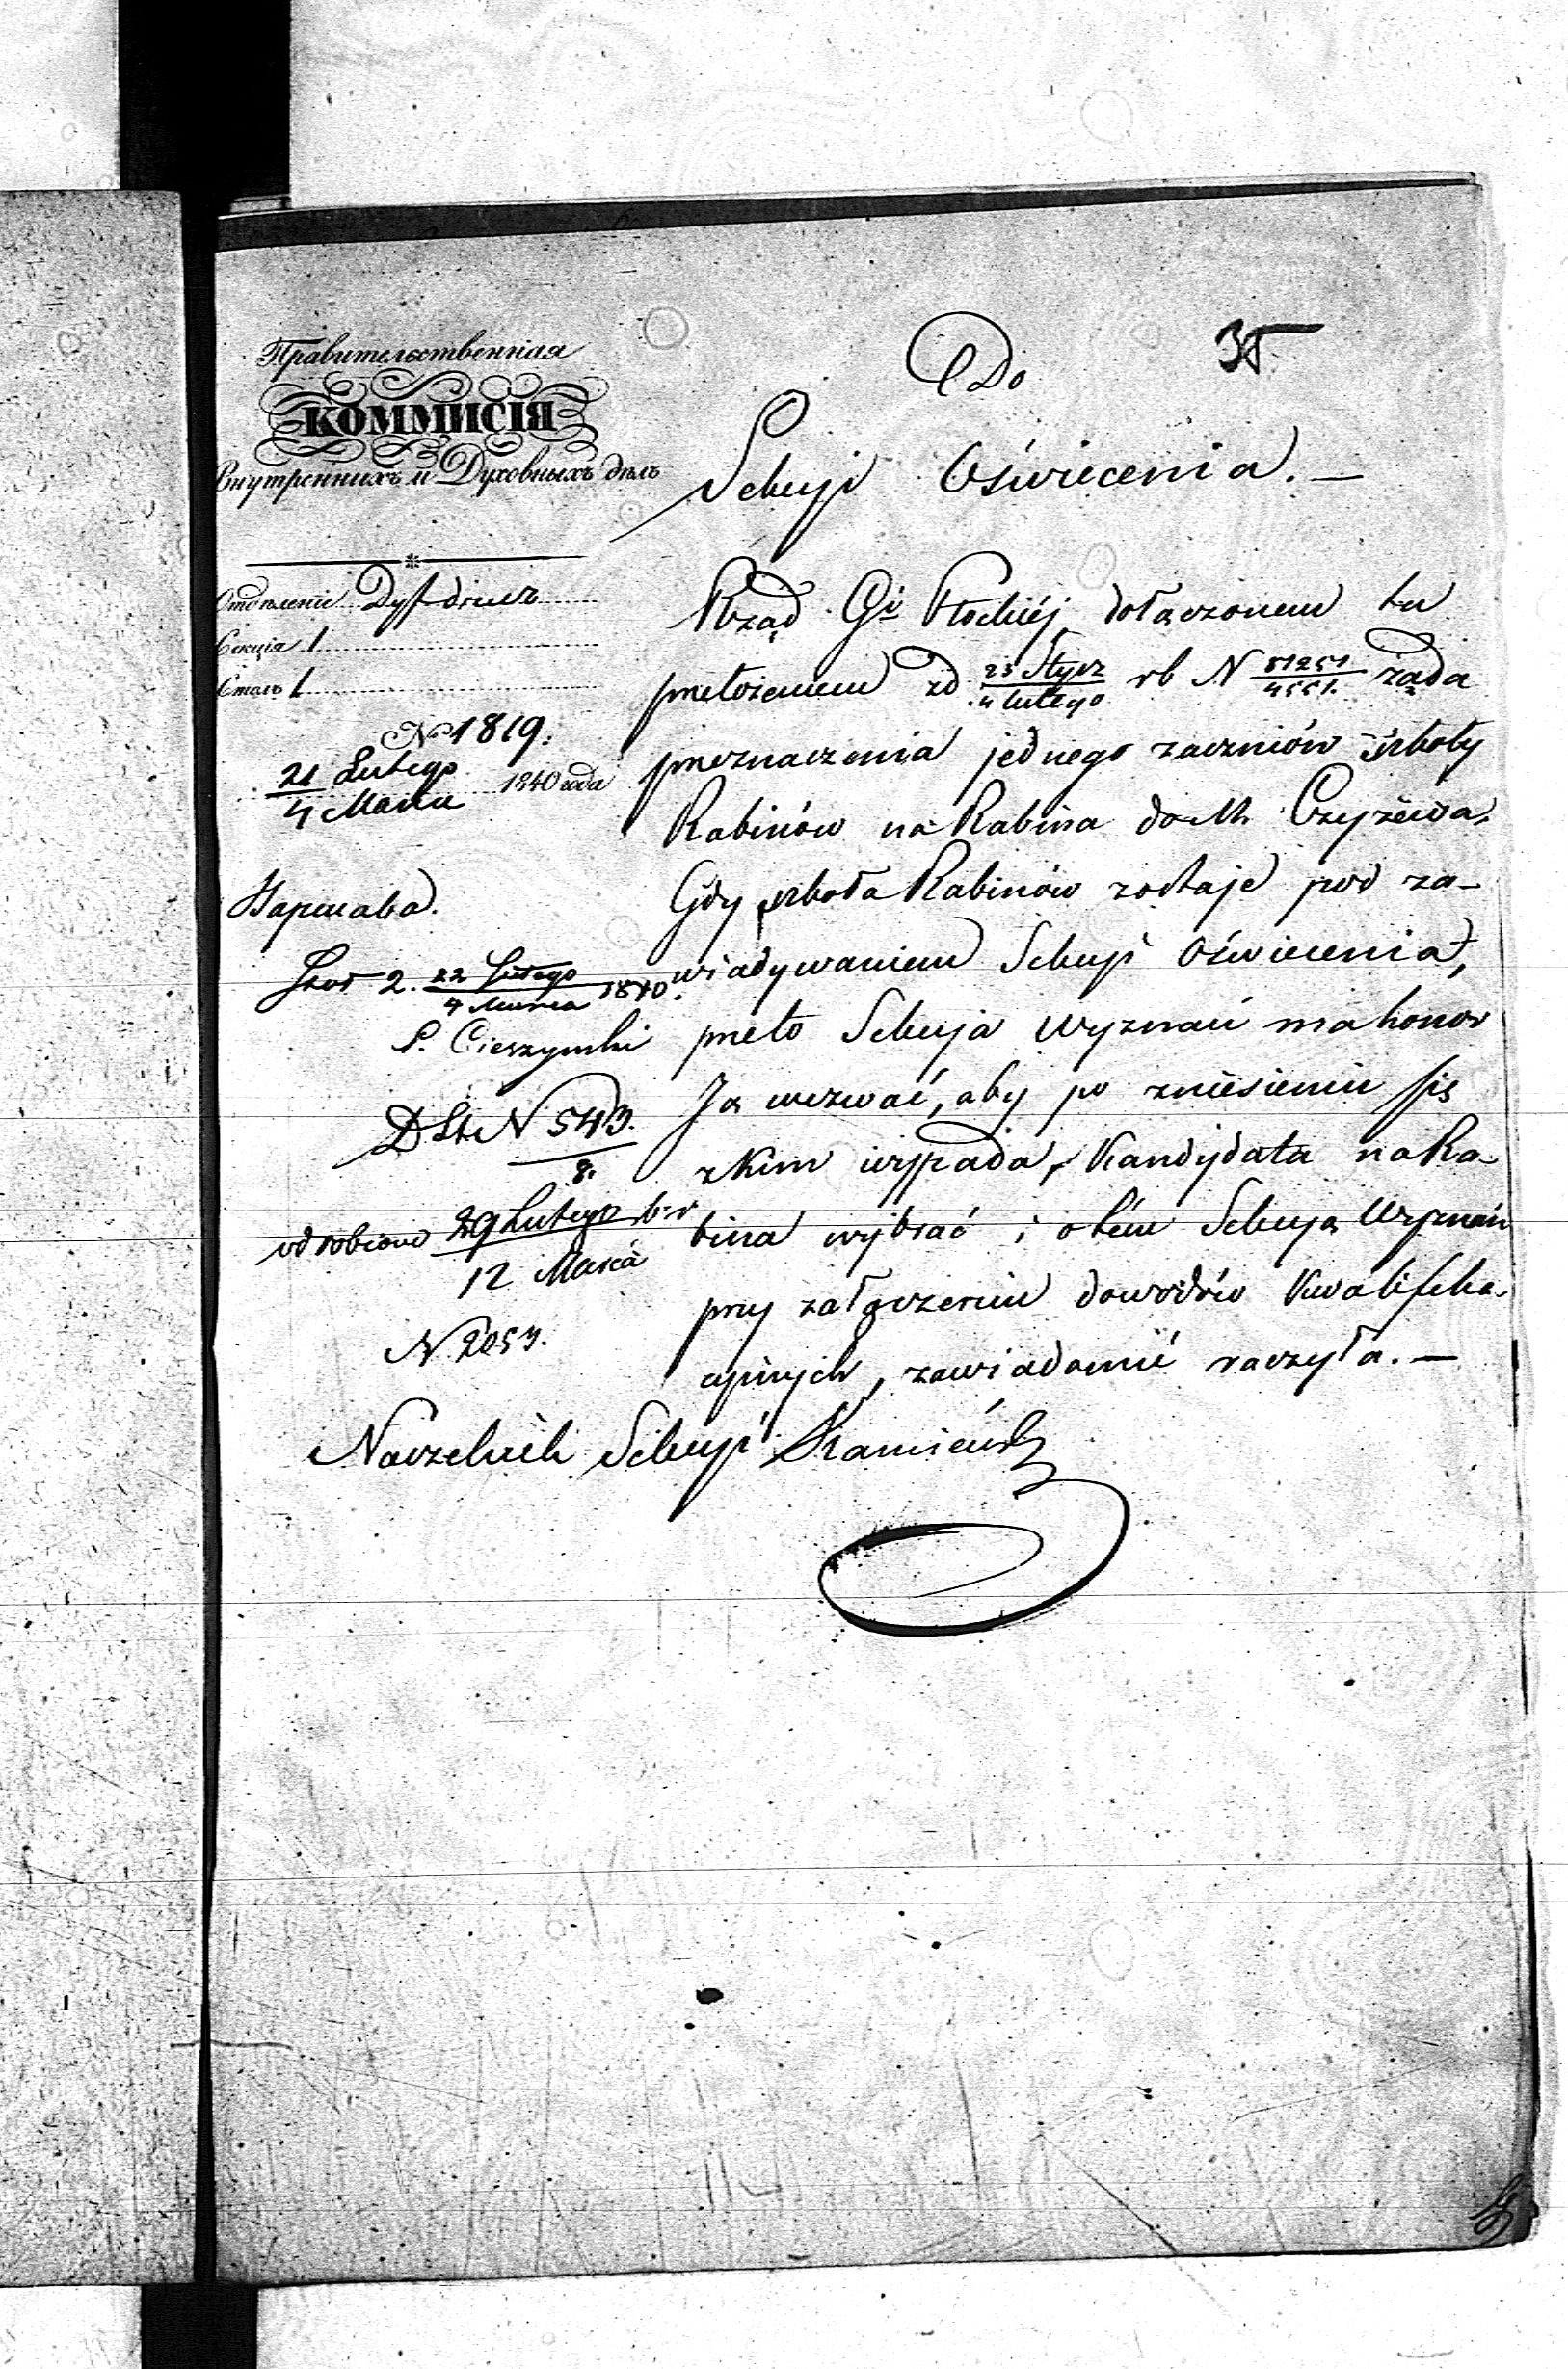 35.
Правительственная
КОММИСІЯ
Внутреннихъ и Духовныхъ дѣлъ
Отдѣленіе
Секція 1
Столъ 1
N 1819.
21 Lutego
4 Marca
1840 года
Варшава.
2. 22 Lutego
4 Marca 1840.
P. Cieszymski
N 543.
8.
odrobiono 29 Lutego b. r
12 Marca
N 2053.
Do
Sekcyi Oświecenia. —
Rząd Gi Płockiéj dołączonem tu
przełożeniem zd 23 Stycz
4 Lutego rb N 81251
4551. rząda
przeznaczenia jednego zuczniów szkoły
Rabinów na Rabina do M. Czyżewa.
Gdy szkoła Rabinów zostaje pod za-
wiadywaniem Sekcyi Oświecenia,
przeto Sekcyja Wyznań ma honor
Ją wezwać, aby po zniesieniu się
zkim wypada, Kandydata na Ra-
bina wybrać i o tém Sekcyą Wyznań
przy załączeniu dowodów kwalifika-
cyinych, zawiadomić raczyła. —
Naczelnik Sekcyi Kamieński